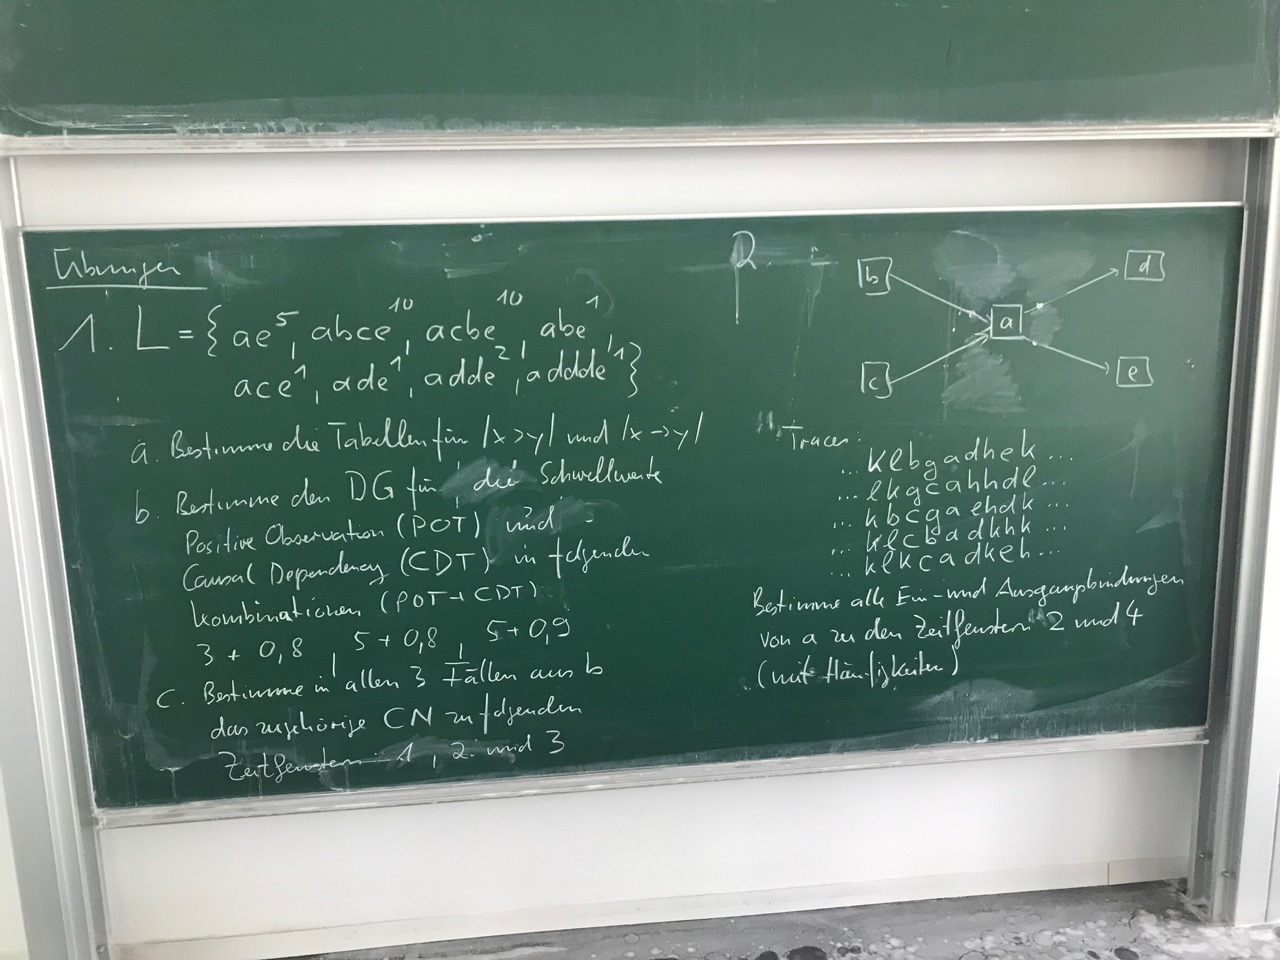 Übungen
1. L = { ae⁵, abce¹⁰, acbe¹⁰, abe¹,
ace¹, ade¹, adde², addde¹ }
a. Bestimme die Tabellen für |x>y| und |x→y|
b. Bestimme den DG für die Schwellwerte
Positive Observation (POT) und
Causal Dependency (CDT) in folgenden
Kombinationen (POT + CDT):
3 + 0,8, 5 + 0,8, 5 + 0,9
c. Bestimme in allen 3 Fällen aus b
das zugehörige CN zu folgenden
Zeitfenstern 1, 2 und 3
2.
b
d
a
c
e
Traces:
... klbgadhek ...
... lkgcahhdl ...
... kbcgaehdk ...
... klcbadkhk ...
... klkcadkeh ...
Bestimme alle Ein- und Ausgangsbindungen
von a zu den Zeitfenstern 2 und 4
(mit Häufigkeiten)